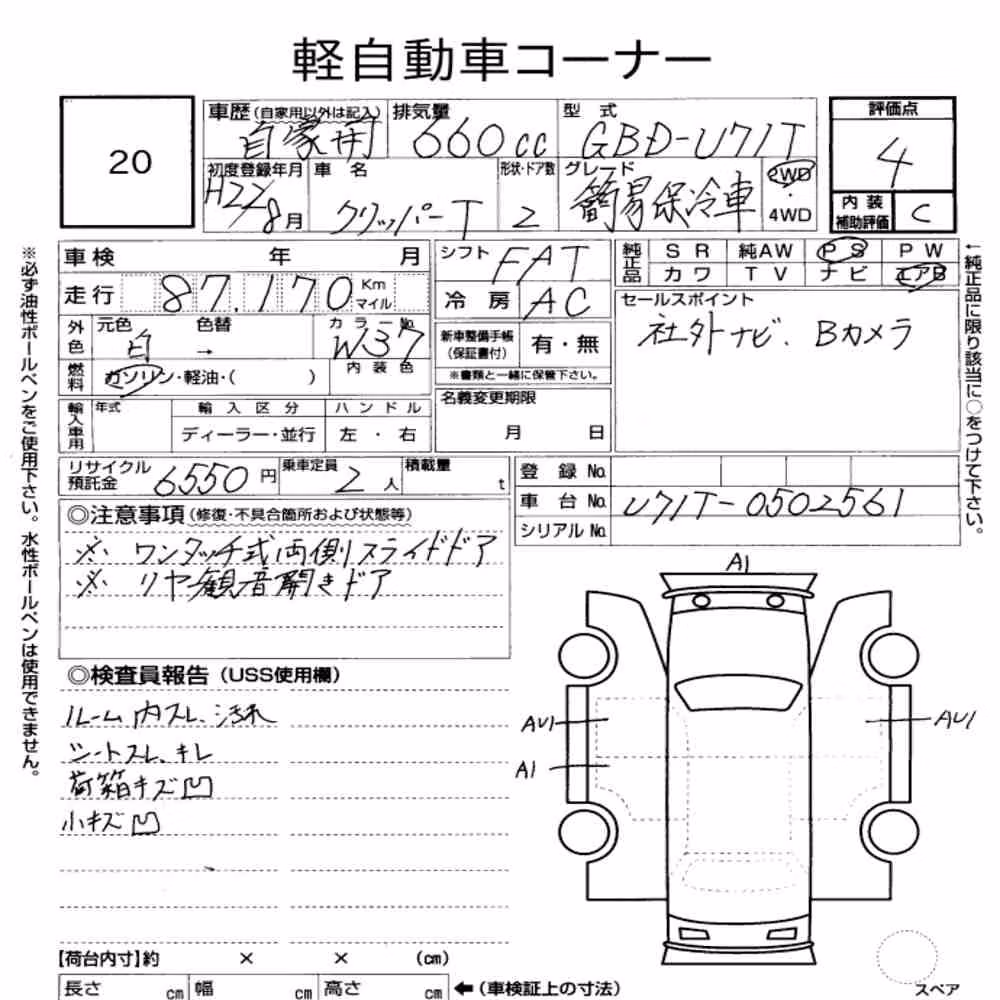 軽自動車コーナー
20
車歴(自家用以外は記入) 自家用 排気量 660cc 型式 GBD-U71T 評価点 4
初度登録年月 H22/8月 車名 クリッパーT 形状・ドア数 2 グレード 簡易保冷車 2WD・4WD 内装補助評価 C
車検 年 月 シフト FAT 純正品 SR 純AW PS PW
走行 87,170 Km マイル 冷房 AC カワ TV ナビ エアB
外色 元色 白 色替 → カラーNo. W37 新車整備手帳(保証書付) 有・無 セールスポイント
社外ナビ、Bカメラ
燃料 ガソリン・軽油・( ) 内装色 ※書類と一緒に保管下さい。
輸入車用 年式 輸入区分 ハンドル 名義変更期限
ディーラー・並行 左・右 月 日
リサイクル預託金 6550円 乗車定員 2人 積載量 t 登録No.
車台No. U71T-0502561
シリアルNo.
◎注意事項(修復・不具合箇所および状態等)
※ ワンタッチ式両側スライドドア
※ リヤ観音開きドア
◎検査員報告(USS使用欄)
ルーム内スレ、汚れ
シートスレ、キレ
荷箱キズ凹
小キズ凹
A1
AU1
AU1
A1
【荷台内寸】約 × × (cm)
長さ cm 幅 cm 高さ cm ←(車検証上の寸法)
スペア
※必ず油性ボールペンをご使用下さい。水性ボールペンは使用できません。
←純正品に限り該当に○をつけて下さい。